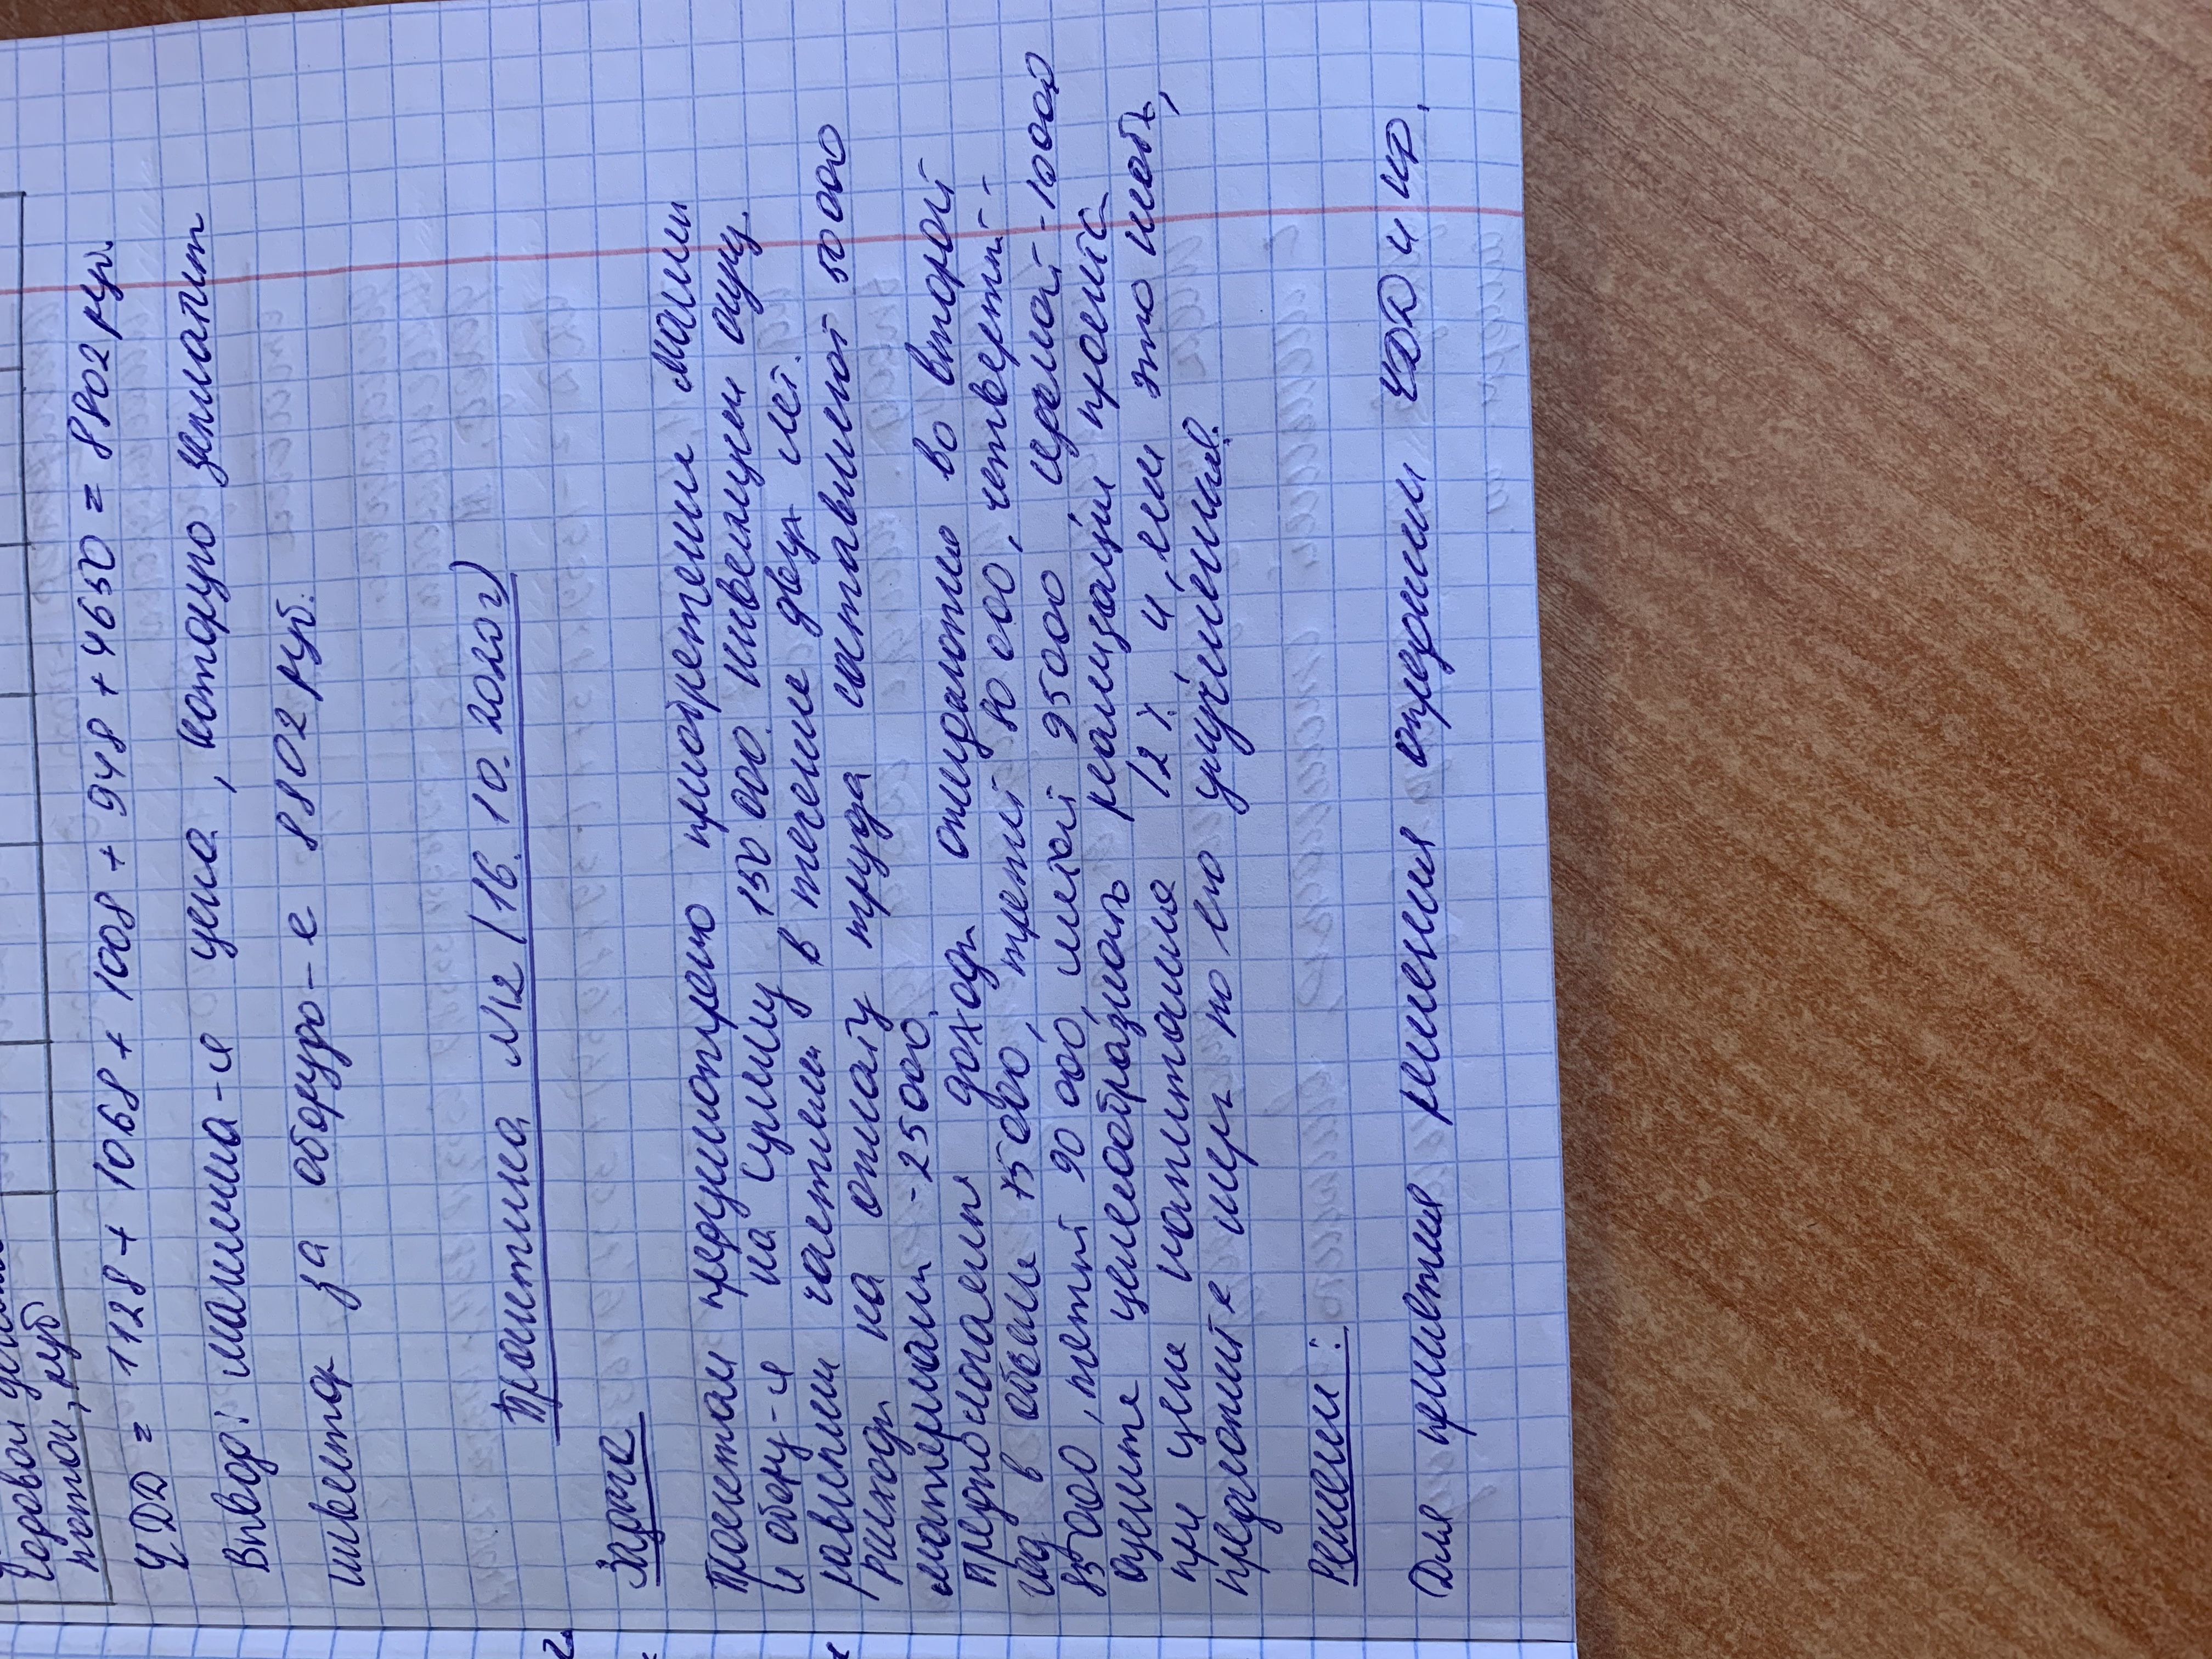 годовой
поток, руб
ЧДД = 1128 + 1068 + 1008 + 948 + 4650 = 8802 руб.
Вывод: максима-я цена, которую заплатит
инвестор за оборудо-е 8802 руб.
Практика №12 (16.10.2020г)
2.
Задача
Проектом предусмотрено приобретение машин
и обору-я на сумму 150 000. Инвестиции осущ.
равными частями в течение двух лет.
Расходы на оплату труда составляют 50 000
материалы - 25000.
Предполагаемые доходы ожидаются во второй
год в объеме 75000, третий 80 000, четвертый -
85 000, пятый 90 000, шестой 95000, седьмой - 10000
оцените целесообразность реализации проекта
при цене капитала 12%, и, если это необх,
предложите меры по его улучшению.
Решение:
Для принятия решения определим ЧДД и ИД.